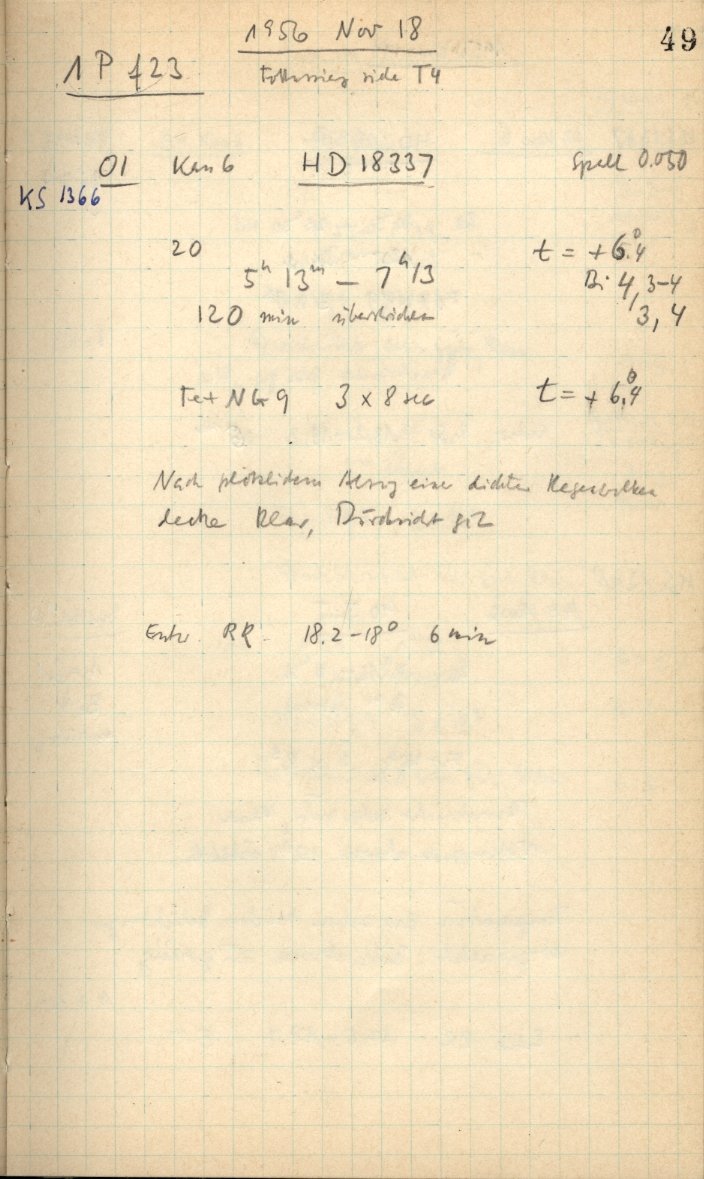 1956 Nov 18
49
1 P 423
Fokussierg siehe T4
01 Kass 6 HD 18337 Spalt 0.050
KS 1366
20
5h 13m – 7h 13
t = +6°.4
Bi 4, 3-4
3, 4
120 min überstrichen
Fe + NG 9 3 x 8 sec t = +6°.4
Nach plötzlichem Abzug einer dichten Regenwolken
decke klar, Durchsicht gut
Entw. RR 18.2 – 18° 6 min